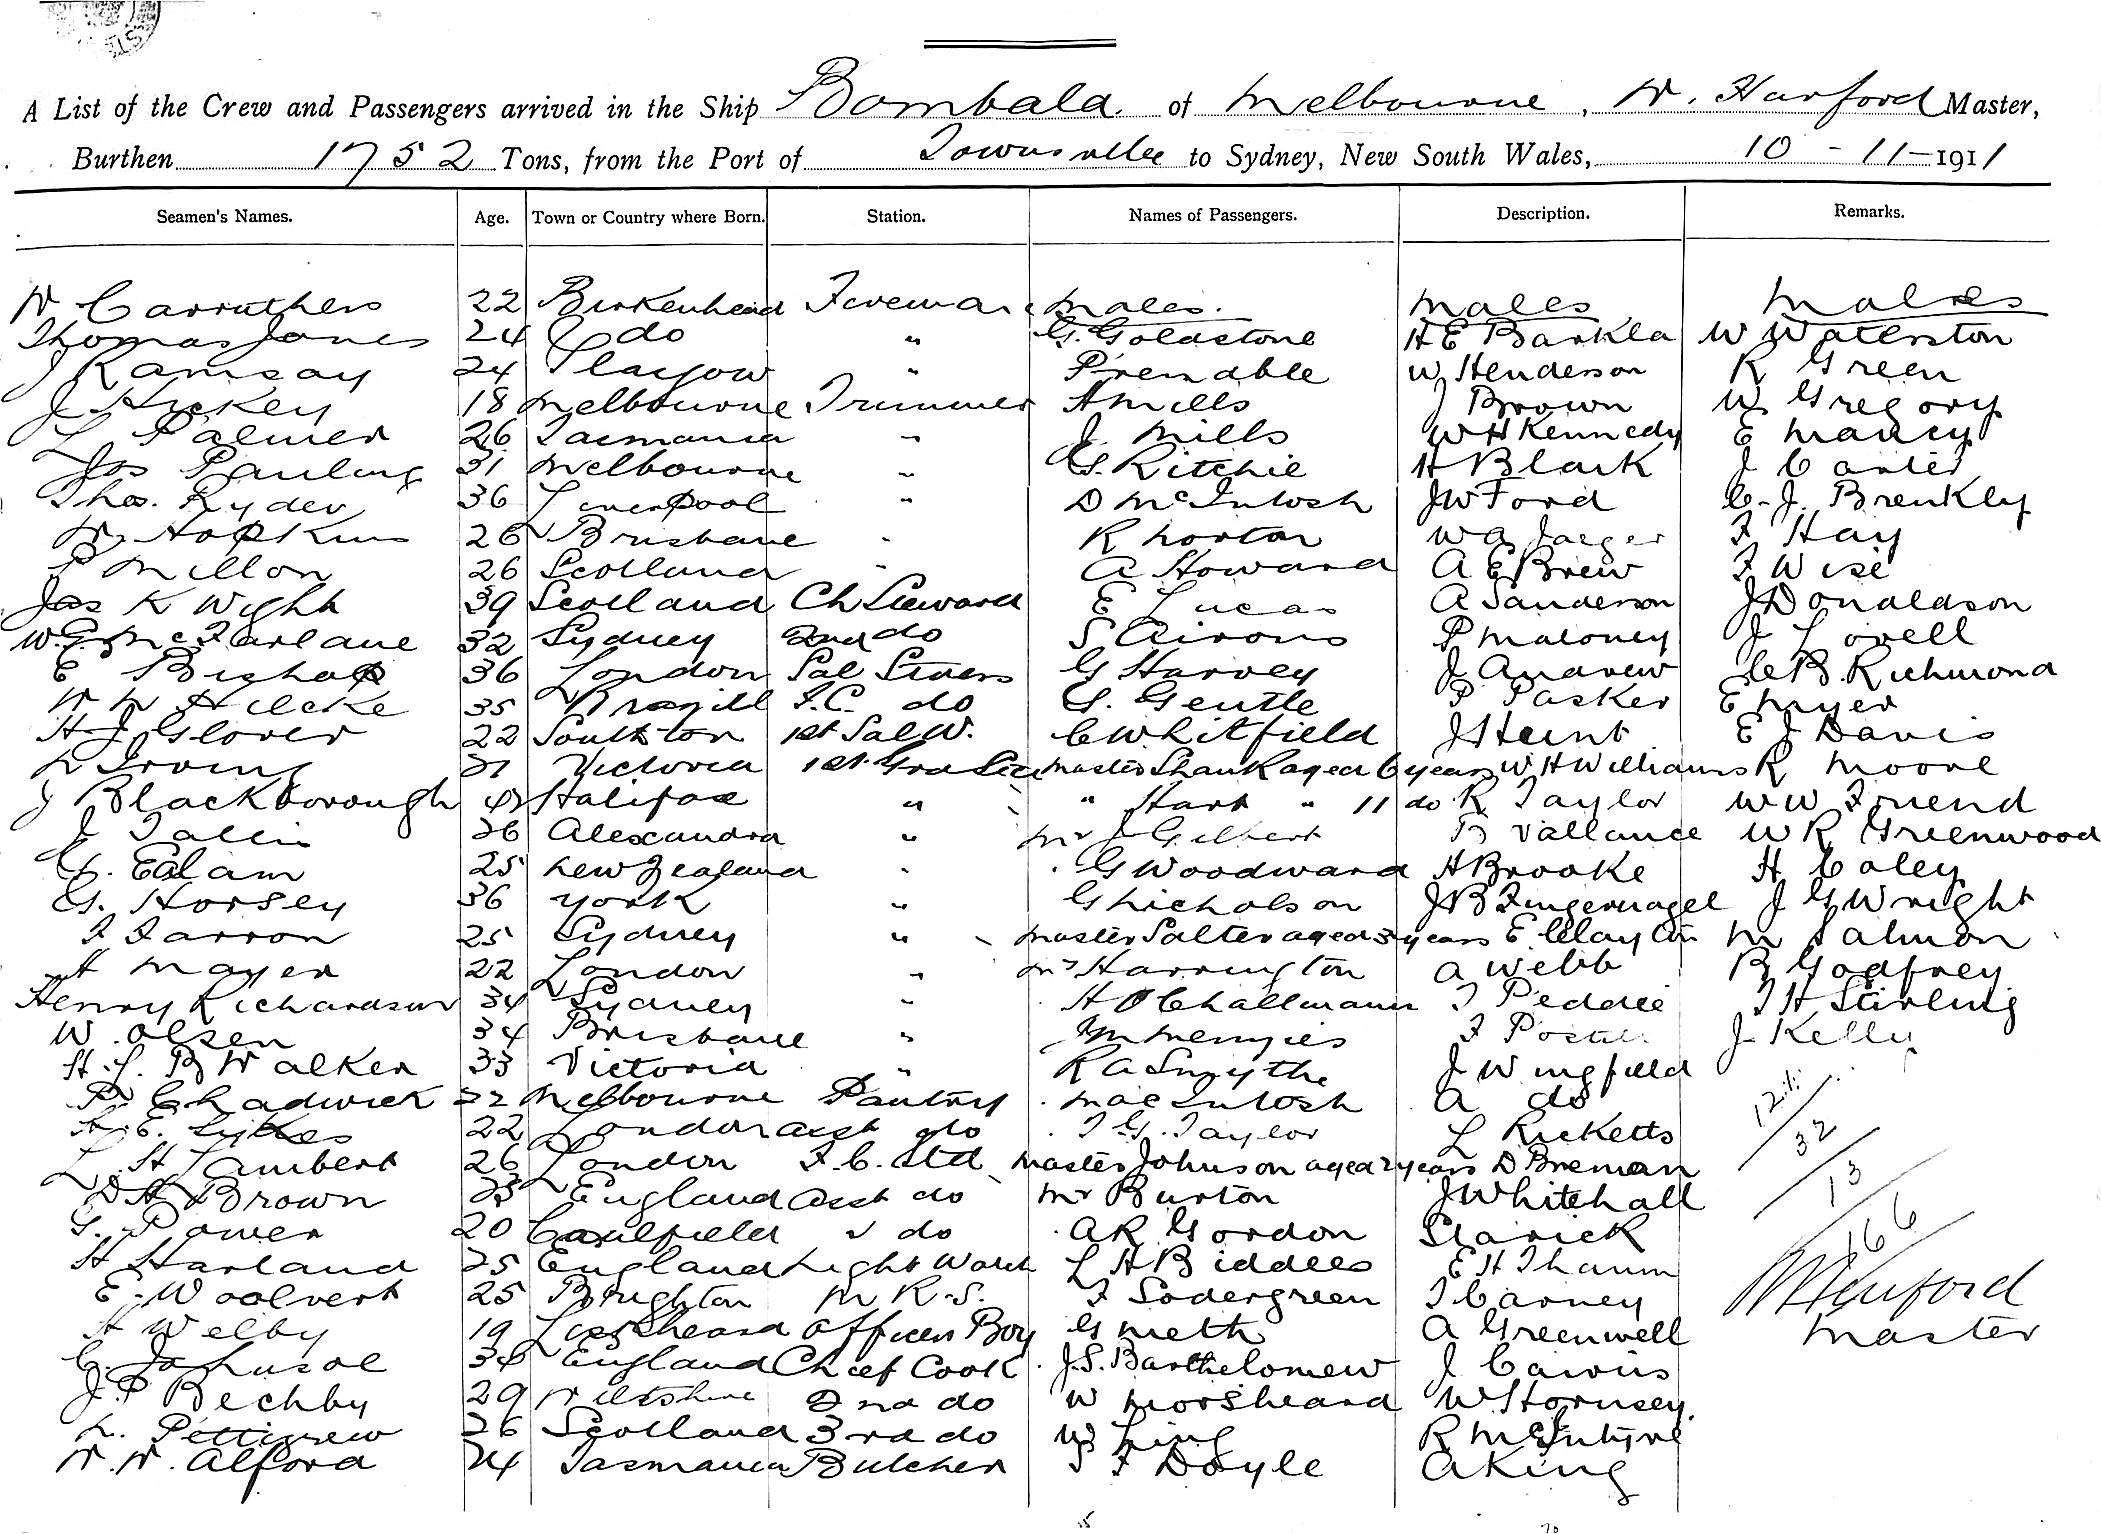 A List of the Crew and Passengers arrived in the Ship Bombala of Melbourne, W. Harford Master,
Burthen 1752 Tons, from the Port of Townsville to Sydney, New South Wales, 10-11-1911
Seamen's Names. Age. Town or Country where Born. Station. Names of Passengers. Description. Remarks.
W Carruthers 22 Birkenhead Fireman Males. Males Males
Thomas Jones 24 do " G. Goldstone H E Barkla W Waterston
J Ramsay 24 Glasgow " Prendable W Henderson R Green
J Hickey 18 Melbourne Trimmer A Mills J Brown W Gregory
L Palmer 26 Tasmania " J. Mills W H Kennedy E Maney
Jas Pauling 31 Melbourne " G. Ritchie H Black J Carter
Thos. Ryder 36 Liverpool " D McIntosh J W Ford C. J. Brenkley
W. Hopkins 26 Brisbane " R Norton W A Jaeger F Hay
P Millon 26 Scotland " A Howard A E Brew F Wise
Jas K Wight 39 Scotland Ch Steward E Lucas A Sanderson J Donaldson
W. G. McFarlane 32 Sydney 2nd do S Airons P Maloney J Lovell
E Bishop 36 London Sal Stwrs G Harvey J Andrew C B. Richmond
W N Hilcke 35 Brazill F.C. do G. Gentle P Pasker E Myer
H J Glover 22 Southton 1st Sal W. C Whitfield J Hunt E J Davis
L Irving 31 Victoria 1st Gra Master Shank aged 6 years W H Williams R Moore
J Blackborough Halifax " " Hart " 11 do R Taylor W W Friend
J Tallin 36 Alexandra " Mr J Gilbert B Vallance W R Greenwood
G. Ealam 25 New Zealand " G Woodward H Brooke H Coley
G. Horsey 36 York " G Nicholson J B Fingernagel J G Wright
F Farron 25 Sydney " Master Salter aged 3 years E Clayton M Salmon
A Mayer 22 London " Mr Harrington A Webb B Godfrey
Henry Richardson 34 Sydney " H O Challmann T Peddie T H Stirling
W. Olsen 34 Brisbane " J M Menzies F Postle J Kelly
H. S. B Walker 33 Victoria " R A Smythe J Wingfield
P Chadwick 22 Melbourne Pantry MacIntosh A do
A. E. Sykes 22 London asst do T G. Taylor L Ricketts
L. H Lambert 26 London F.C. Std Master Johnson aged 2 years D Brennan
D A Brown 23 England asst do Mr Burton J Whitehall
G. Power 20 Caulfield " do A R Gordon
H Harland 25 England Night Watch L H Biddles E H Thamm
E. Woolvert 25 Brighton M R. S. F Sodergreen T Carney
A Welby 19 Officers Boy G Meth A Greenwell
C. Johnson 34 England Chief Cook J. S. Bartholomew J Cairns
J. P Bechby 29 Wiltshire 2nd do W Morshead W Hornsey.
L. Pettigrew 26 Scotland 3rd do W Ling R McIntyre
W. W. Alford 24 Tasmania Butcher F Doyle A King
121
32
13
166
W Harford
Master